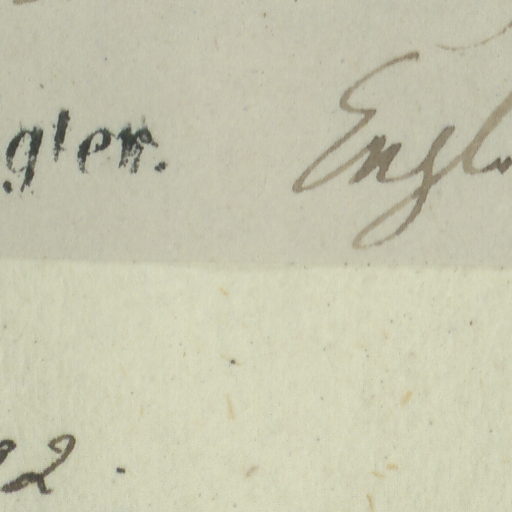 gler. Engl
22.